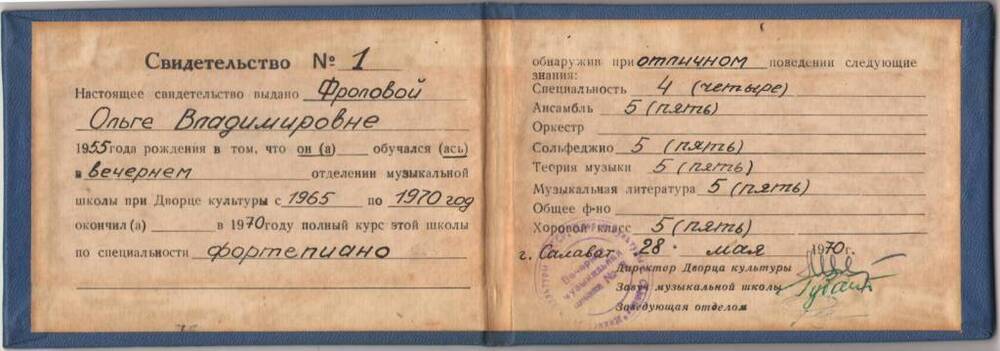 Свидетельство № 1
Настоящее свидетельство выдано Фроловой
Ольге Владимировне
1955 года рождения в том, что он (а) обучался (ась)
в вечернем отделении музыкальной
школы при Дворце культуры с 1965 по 1970 год
окончил (а) в 1970 году полный курс этой школы
по специальности фортепиано
обнаружив при отличном поведении следующие
знания:
Специальность 4 (четыре)
Ансамбль 5 (пять)
Оркестр
Сольфеджио 5 (пять)
Теория музыки 5 (пять)
Музыкальная литература 5 (пять)
Общее ф-но
Хоровой класс 5 (пять)
г. Салават 28 мая 1970 г.
Директор Дворца культуры
Завуч музыкальной школы
Заведующая отделом
Вечерняя
музыкальная
школа